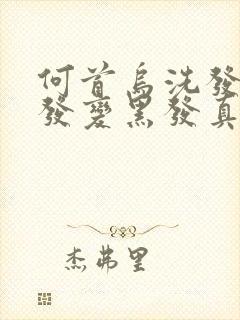 何首烏洗發
發變黑發真
杰弗里